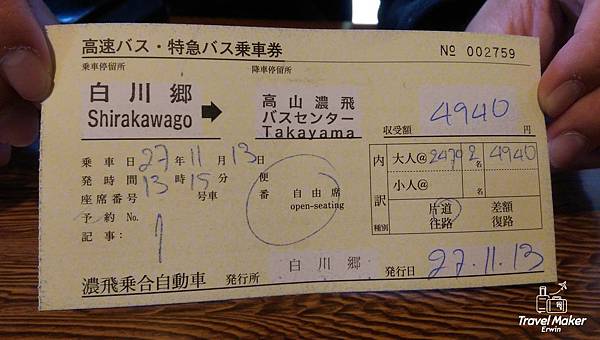 高速バス・特急バス乗車券 № 002759
乗車停留所 降車停留所
白川郷 ➡ 高山濃飛
Shirakawago バスセンター
Takayama
収受額 4940 円
乗車日 27年11月13日
発時間 13時15分 便
座席番号 号車 番 自由席
open-seating
予約 No.
記事:
内訳 大人@2470 2名 4940
小人@ 名
種別 片道 差額
往路 復路
濃飛乗合自動車 発行所 白川郷 発行日 27.11.13
Travel Maker
Erwin